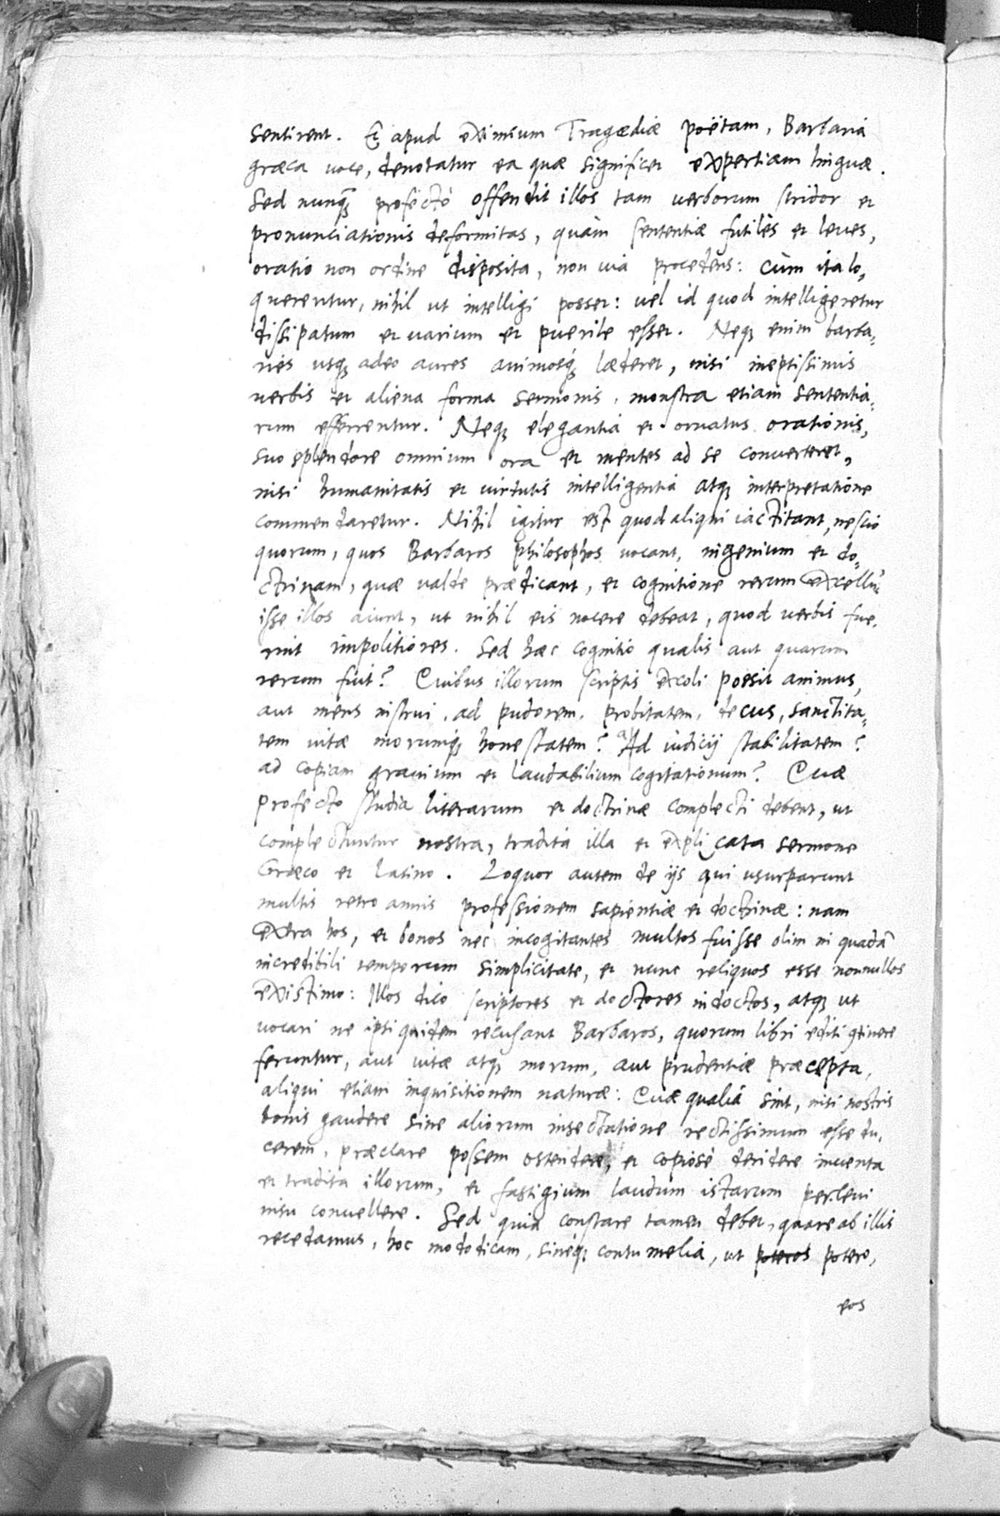 sentirent. Et apud eximium Tragœdiæ poëtam, Barbaria
græca voce, denotatur ea quæ significet expertiam linguæ.
Sed nunq̃ profectò offendit illos tam uerborum stridor et
pronunciationis deformitas, quàm sententiæ futiles et leues,
oratio non ordine disposita, non uia procedens: cùm ita lo,
querentur, nihil ut intelligi posset: uel id quod intelligeretur
dissipatum et uarium et puerile esset. Neqꝫ enim barba,
ries usqꝫ adeo aures animosqꝫ læderet, nisi ineptissimis
uerbis et aliena forma sermonis, monstra etiam sententia,
rum efferrentur. Neqꝫ elegantia et ornatus orationis,
suo splendore omnium ora et mentes ad se conuerteret,
nisi humanitatis et uirtutis intelligentia atqꝫ interpretatione
commendaretur. Nihil igitur est quod aliqui iactitant, nescio
quorum, quos Barbaros philosophos uocant, ingenium et do,
ctrinam, quæ ualde prædicant, et cognitione rerum excellu,
isse illos aiunt, ut nihil eis nocere debeat, quod uerbis fue,
rint impolitiores. Sed hæc cognitio qualis aut quarum
rerum fuit? Cuibus illorum scriptis excoli possit animus,
aut mens instrui, ad pudorem, probitatem, decus, sanctita,
tem uitæ morumqꝫ honestatem? Ad iudicij stabilitatem?
ad copiam grauium et laudabilium cogitationum? Quæ
profecto studia literarum et doctrinæ complecti debent, ut
complectuntur nostra, tradita illa et explicata sermone
Græco et Latino. Loquor autem de ijs qui usurparunt
multis retro annis professionem sapientiæ et doctrinæ: nam
extra hos, et bonos nec incogitantes multos fuisse olim in quadā
incredibili temporum simplicitate, et nunc reliquos esse nonnullos
existimo: Illos dico scriptores et doctores indoctos, atqꝫ ut
uocari ne ipsi quidem recusant Barbaros, quorum libri editi
feruntur, aut uitæ atqꝫ morum, aut prudentiæ præcepta,
aliqui etiam inquisitionem naturæ: Quæ qualia sint, nisi nostris
bonis gaudere sine aliorum insectatione rectissimum esse du,
cerem, præclare possem ostendere, et copiosè deridere inuenta
et tradita illorum, et fastigium laudum istarum perleui
nisu conuellere. Sed quia constare tamen debet, quare ab illis
recedamus, hoc modo dicam, sineqꝫ contumelia, ut poteros potero,
eos